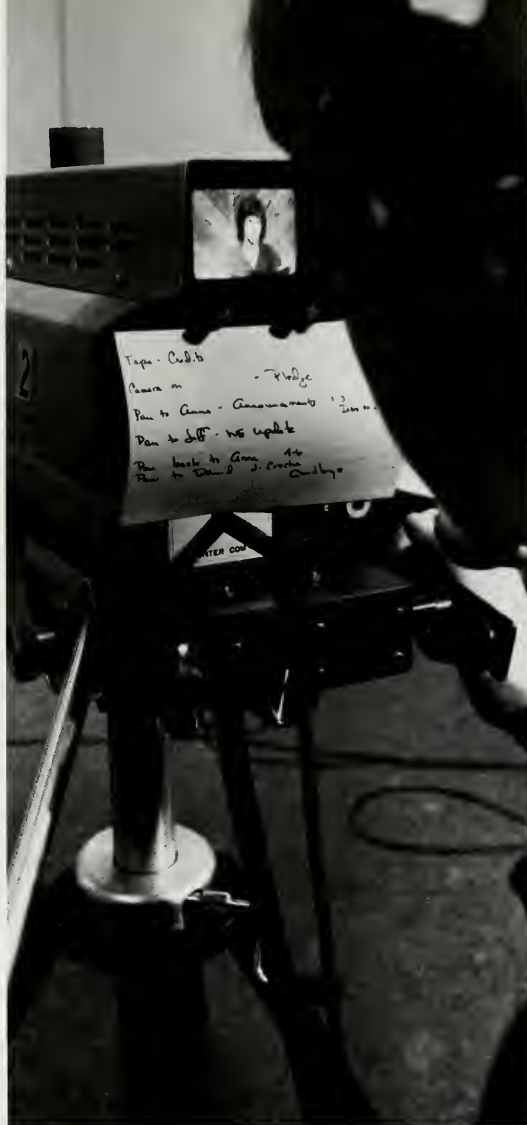 2
Tape - Credits
Camera on - Pledge
Pan to Anne - Announcements 1 3
Pan to Jeff - update
Pan back to Anne
Pan to David
Goodbye
NTER COM